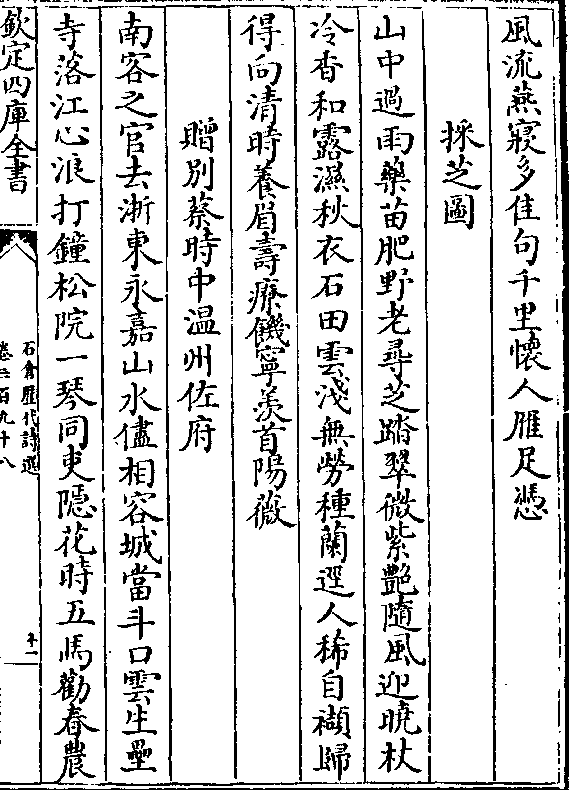 風流燕寢多佳句千里懷人雁足憑
採芝圖
山中過雨藥苗肥野老尋芝踏翠微紫艶隨風迎曉杖
冷香和露濕秋衣石田雲淺無勞種蘭逕人稀自襭歸
得向清時養眉壽療饑寧羡首陽薇
贈別蔡時中温州佐府
南客之官去浙東永嘉山水儘相容城當斗口雲生壘
寺落江心浪打鐘松院一琴同吏隱花時五馬勸春農
欽定四庫全書
石倉歷代詩選
卷三百九十八